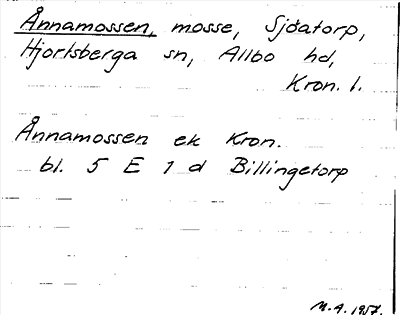 Ånnamossen, mosse, Sjöatorp,
Hjortsberga sn, Allbo hd,
Kron. l.
Ånnamossen ek Kron.
bl. 5 E 1 d Billingetorp
M.A. 1957.